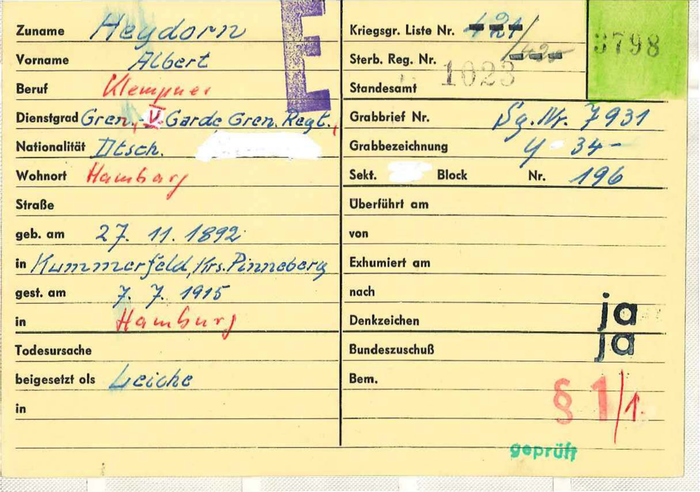 Zuname Heydorn
Vorname Albert
Beruf Klempner
Dienstgrad Gren., V. Garde Gren. Regt.,
Nationalität Dtsch.
Wohnort Hamburg
Straße
geb. am 27. 11. 1892
in Kummerfeld, Krs. Pinneberg
gest. am 7. 7. 1915
in Hamburg
Todesursache
beigesetzt als Leiche
in
E
Kriegsgr. Liste Nr. 421
Sterb. Reg. Nr. 1023
Standesamt
Grabbrief Nr. Sg. Nr. 7931
Grabbezeichnung 34-
Sekt. Block Nr. 196
Überführt am
von
Exhumiert am
nach
Denkzeichen ja
Bundeszuschuß ja
Bem.
§ 1/1.
geprüft
3798